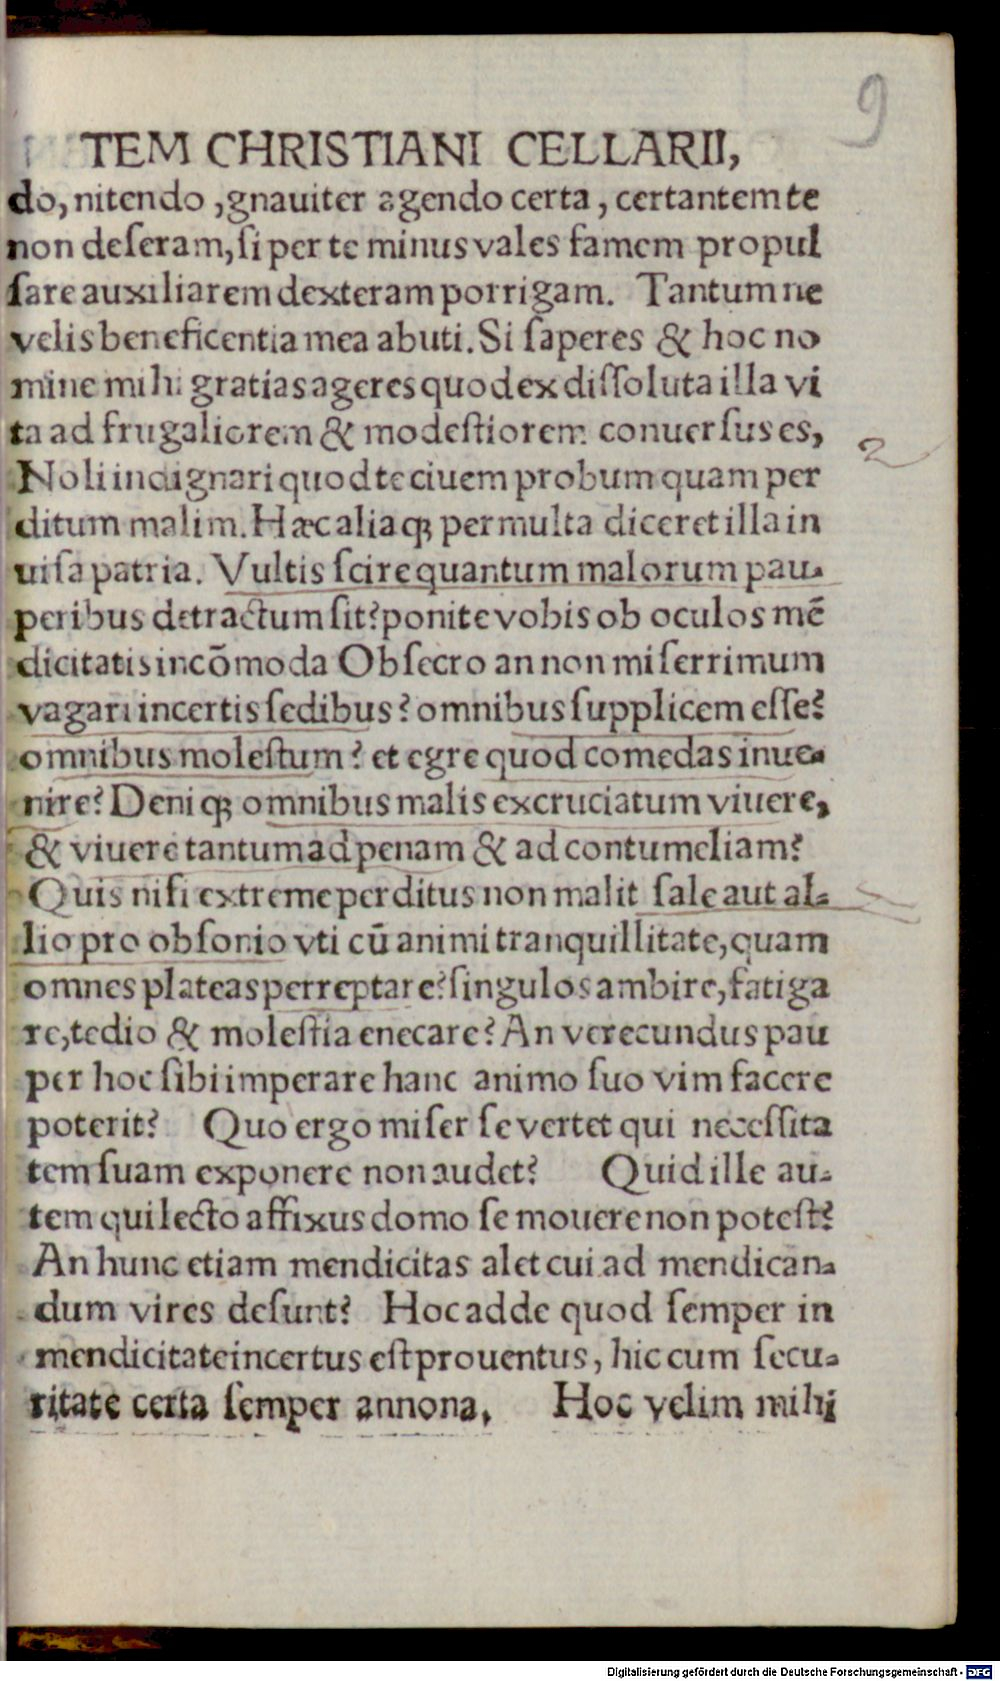 9
TEM CHRISTIANI CELLARII,
do, nitendo, gnauiter agendo certa, certantem te
non deſeram, ſi per te minus vales famem propul
ſare auxiliarem dexteram porrigam. Tantum ne
velis beneficentia mea abuti. Si ſaperes & hoc no
mine mihi gratias ageres quod ex diſſoluta illa vi
ta ad frugaliorem & modeſtiorem conuerſus es,
2
Noli indignari quod te ciuem probum quam per
ditum malim. Hæc aliaqȝ permulta diceret illa in
uiſa patria. Vultis ſcire quantum malorum pau-
peribus detractum ſit? ponite vobis ob oculos mē
dicitatis incōmoda Obſecro an non miſerrimum
vagari incertis ſedibus? omnibus ſupplicem eſſe?
omnibus moleſtum? et egre quod comedas inue-
nire? Deniqȝ omnibus malis excruciatum viuere,
& viuere tantum ad penam & ad contumeliam?
Quis niſi extreme perditus non malit ſale aut al-
lio pro obſonio vti cū animi tranquillitate, quam
omnes plateas perreptare? ſingulos ambire, fatiga
re, tedio & moleſtia enecare? An verecundus pau
per hoc ſibi imperare hanc animo ſuo vim facere
poterit? Quo ergo miſer ſe vertet qui neceſſita
tem ſuam exponere non audet? Quid ille au-
tem qui lecto affixus domo ſe mouere non poteſt?
An hunc etiam mendicitas alet cui ad mendican-
dum vires deſunt? Hoc adde quod ſemper in
mendicitate incertus eſt prouentus, hic cum ſecu-
ritate certa ſemper annona, Hoc velim mihi
Digitalisierung gefördert durch die Deutsche Forschungsgemeinschaft - DFG